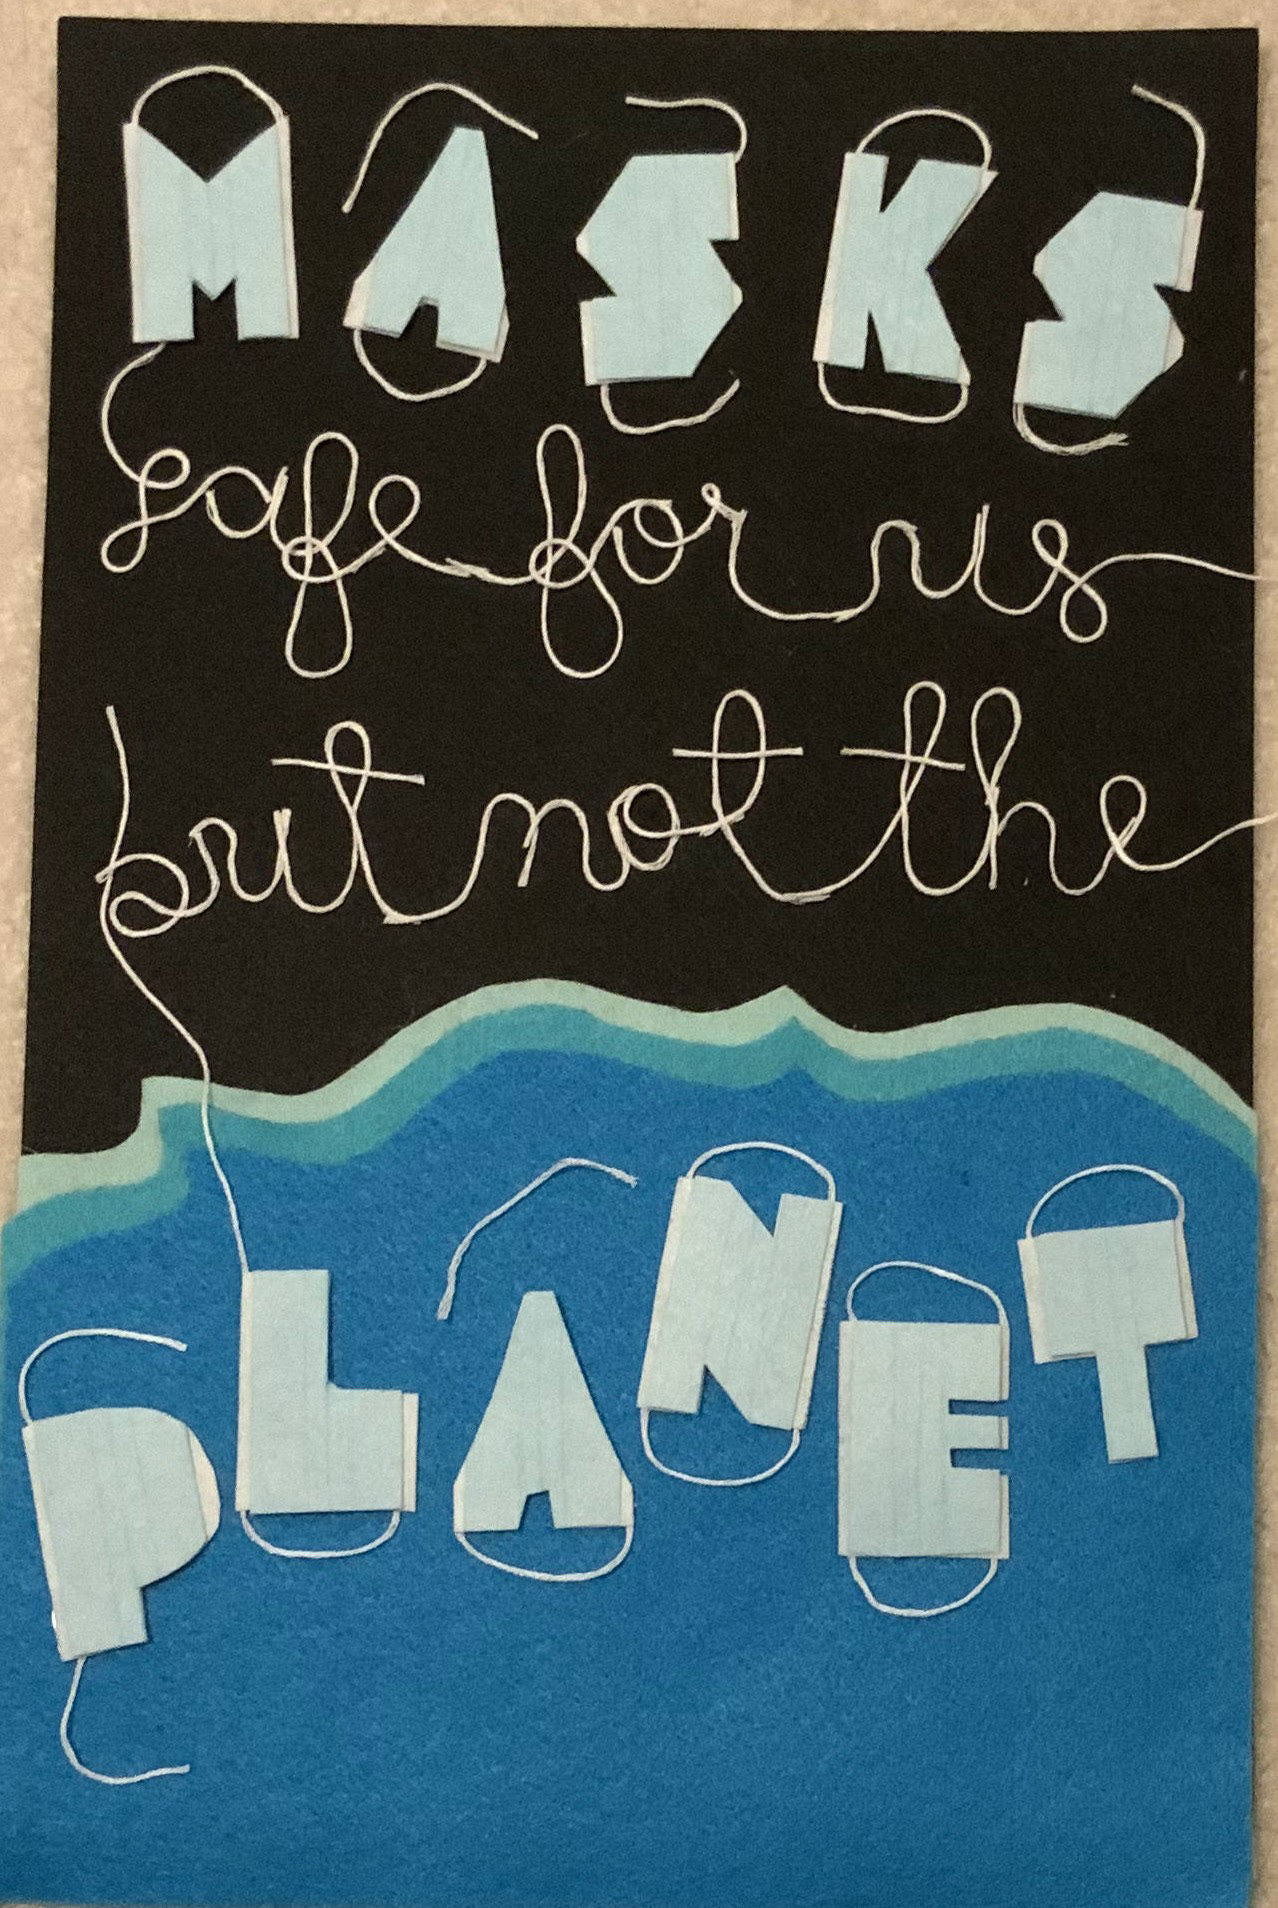 MASKS
safe for us
but not the
PLANET